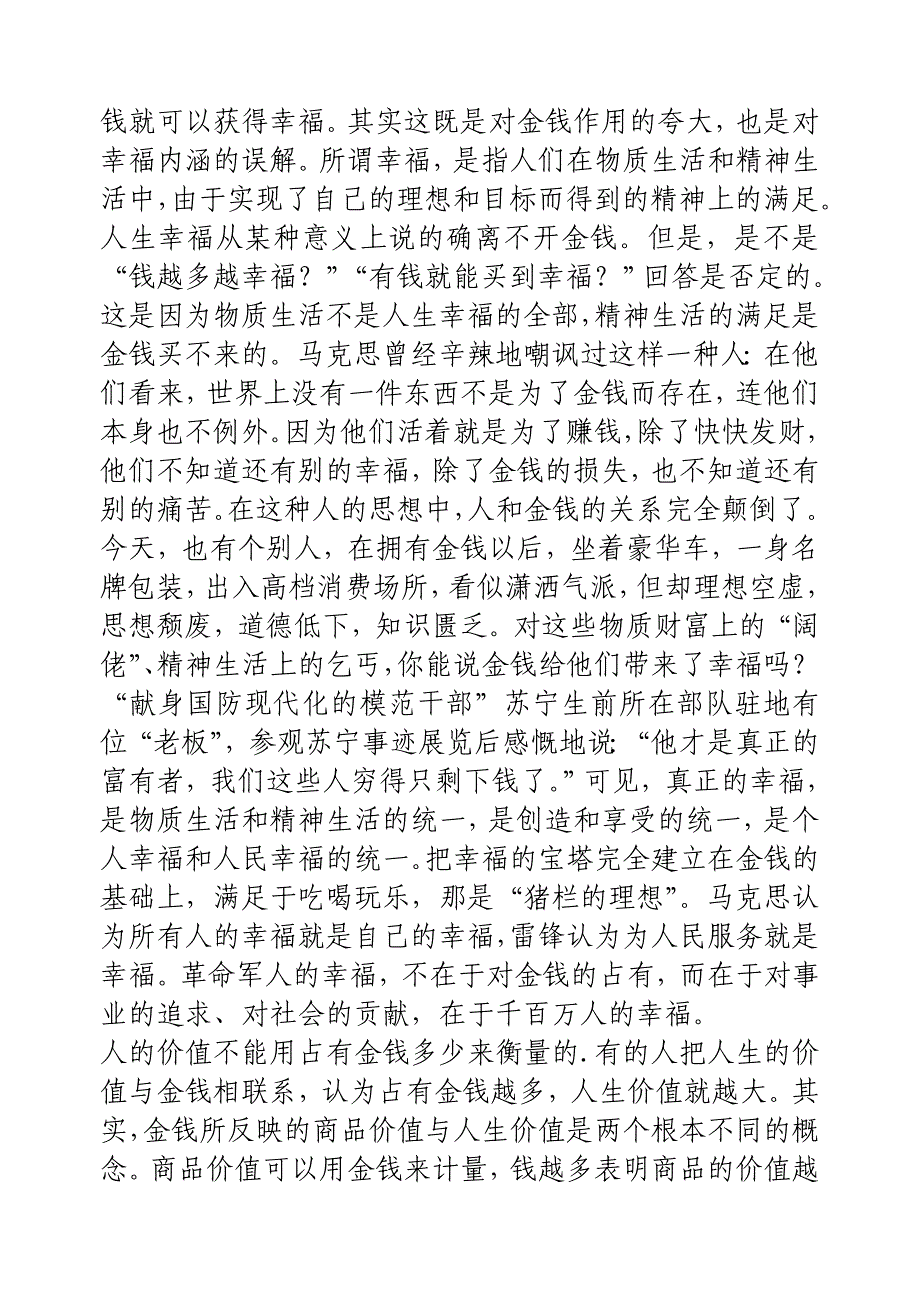 钱就可以获得幸福。其实这既是对金钱作用的夸大，也是对
幸福内涵的误解。所谓幸福，是指人们在物质生活和精神生
活中，由于实现了自己的理想和目标而得到的精神上的满足。
人生幸福从某种意义上说的确离不开金钱。但是，是不是
“钱越多越幸福？”“有钱就能买到幸福？”回答是否定的。
这是因为物质生活不是人生幸福的全部，精神生活的满足是
金钱买不来的。马克思曾经辛辣地嘲讽过这样一种人：在他
们看来，世界上没有一件东西不是为了金钱而存在，连他们
本身也不例外。因为他们活着就是为了赚钱，除了快快发财，
他们不知道还有别的幸福，除了金钱的损失，也不知道还有
别的痛苦。在这种人的思想中，人和金钱的关系完全颠倒了。
今天，也有个别人，在拥有金钱以后，坐着豪华车，一身名
牌包装，出入高档消费场所，看似潇洒气派，但却理想空虚，
思想颓废，道德低下，知识匮乏。对这些物质财富上的“阔
佬”、精神生活上的乞丐，你能说金钱给他们带来了幸福吗？
“献身国防现代化的模范干部”苏宁生前所在部队驻地有
位“老板”，参观苏宁事迹展览后感慨地说：“他才是真正的
富有者，我们这些人穷得只剩下钱了。”可见，真正的幸福，
是物质生活和精神生活的统一，是创造和享受的统一，是个
人幸福和人民幸福的统一。把幸福的宝塔完全建立在金钱的
基础上，满足于吃喝玩乐，那是“猪栏的理想”。马克思认
为所有人的幸福就是自己的幸福，雷锋认为为人民服务就是
幸福。革命军人的幸福，不在于对金钱的占有，而在于对事
业的追求、对社会的贡献，在于千百万人的幸福。
人的价值不能用占有金钱多少来衡量的.有的人把人生的价
值与金钱相联系，认为占有金钱越多，人生价值就越大。其
实，金钱所反映的商品价值与人生价值是两个根本不同的概
念。商品价值可以用金钱来计量，钱越多表明商品的价值越